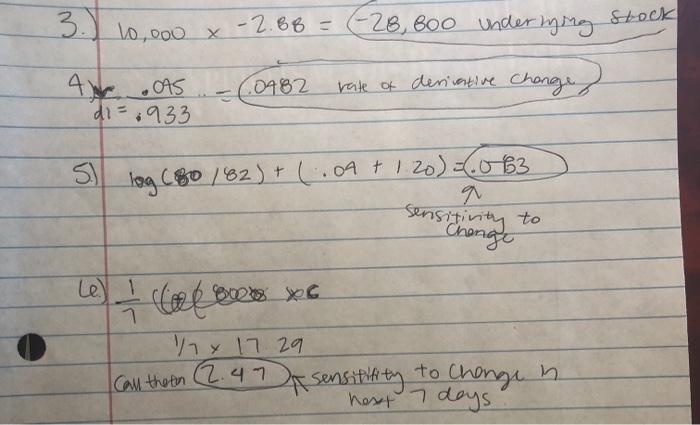 3.) 10,000 x -2.88 = -28,800 underlying stock
4) .045 = .0482 rate of derivative change
d1 = .933
5) log(80/82) + (.04 + 1.20) = .083
sensitivity to
change
6.) 1/7
1/7 x 17.29
Call theta 2.47 sensitifity to change in
next 7 days